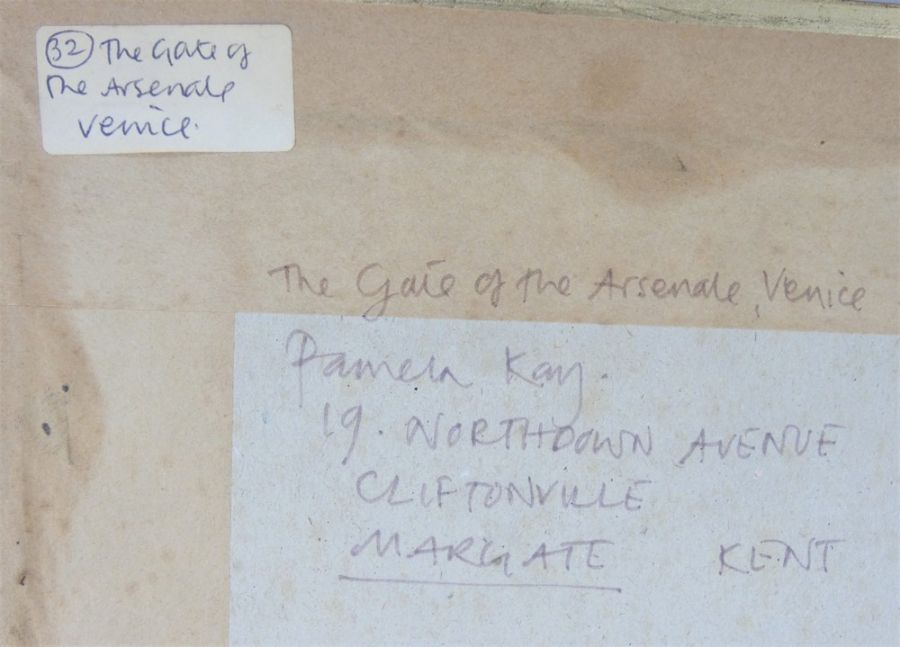 32 The Gate of
The Arsenale
Venice.
The Gate of the Arsenale, Venice
Pamela Kay.
19. NORTHDOWN AVENUE
CLIFTONVILLE
MARGATE KENT